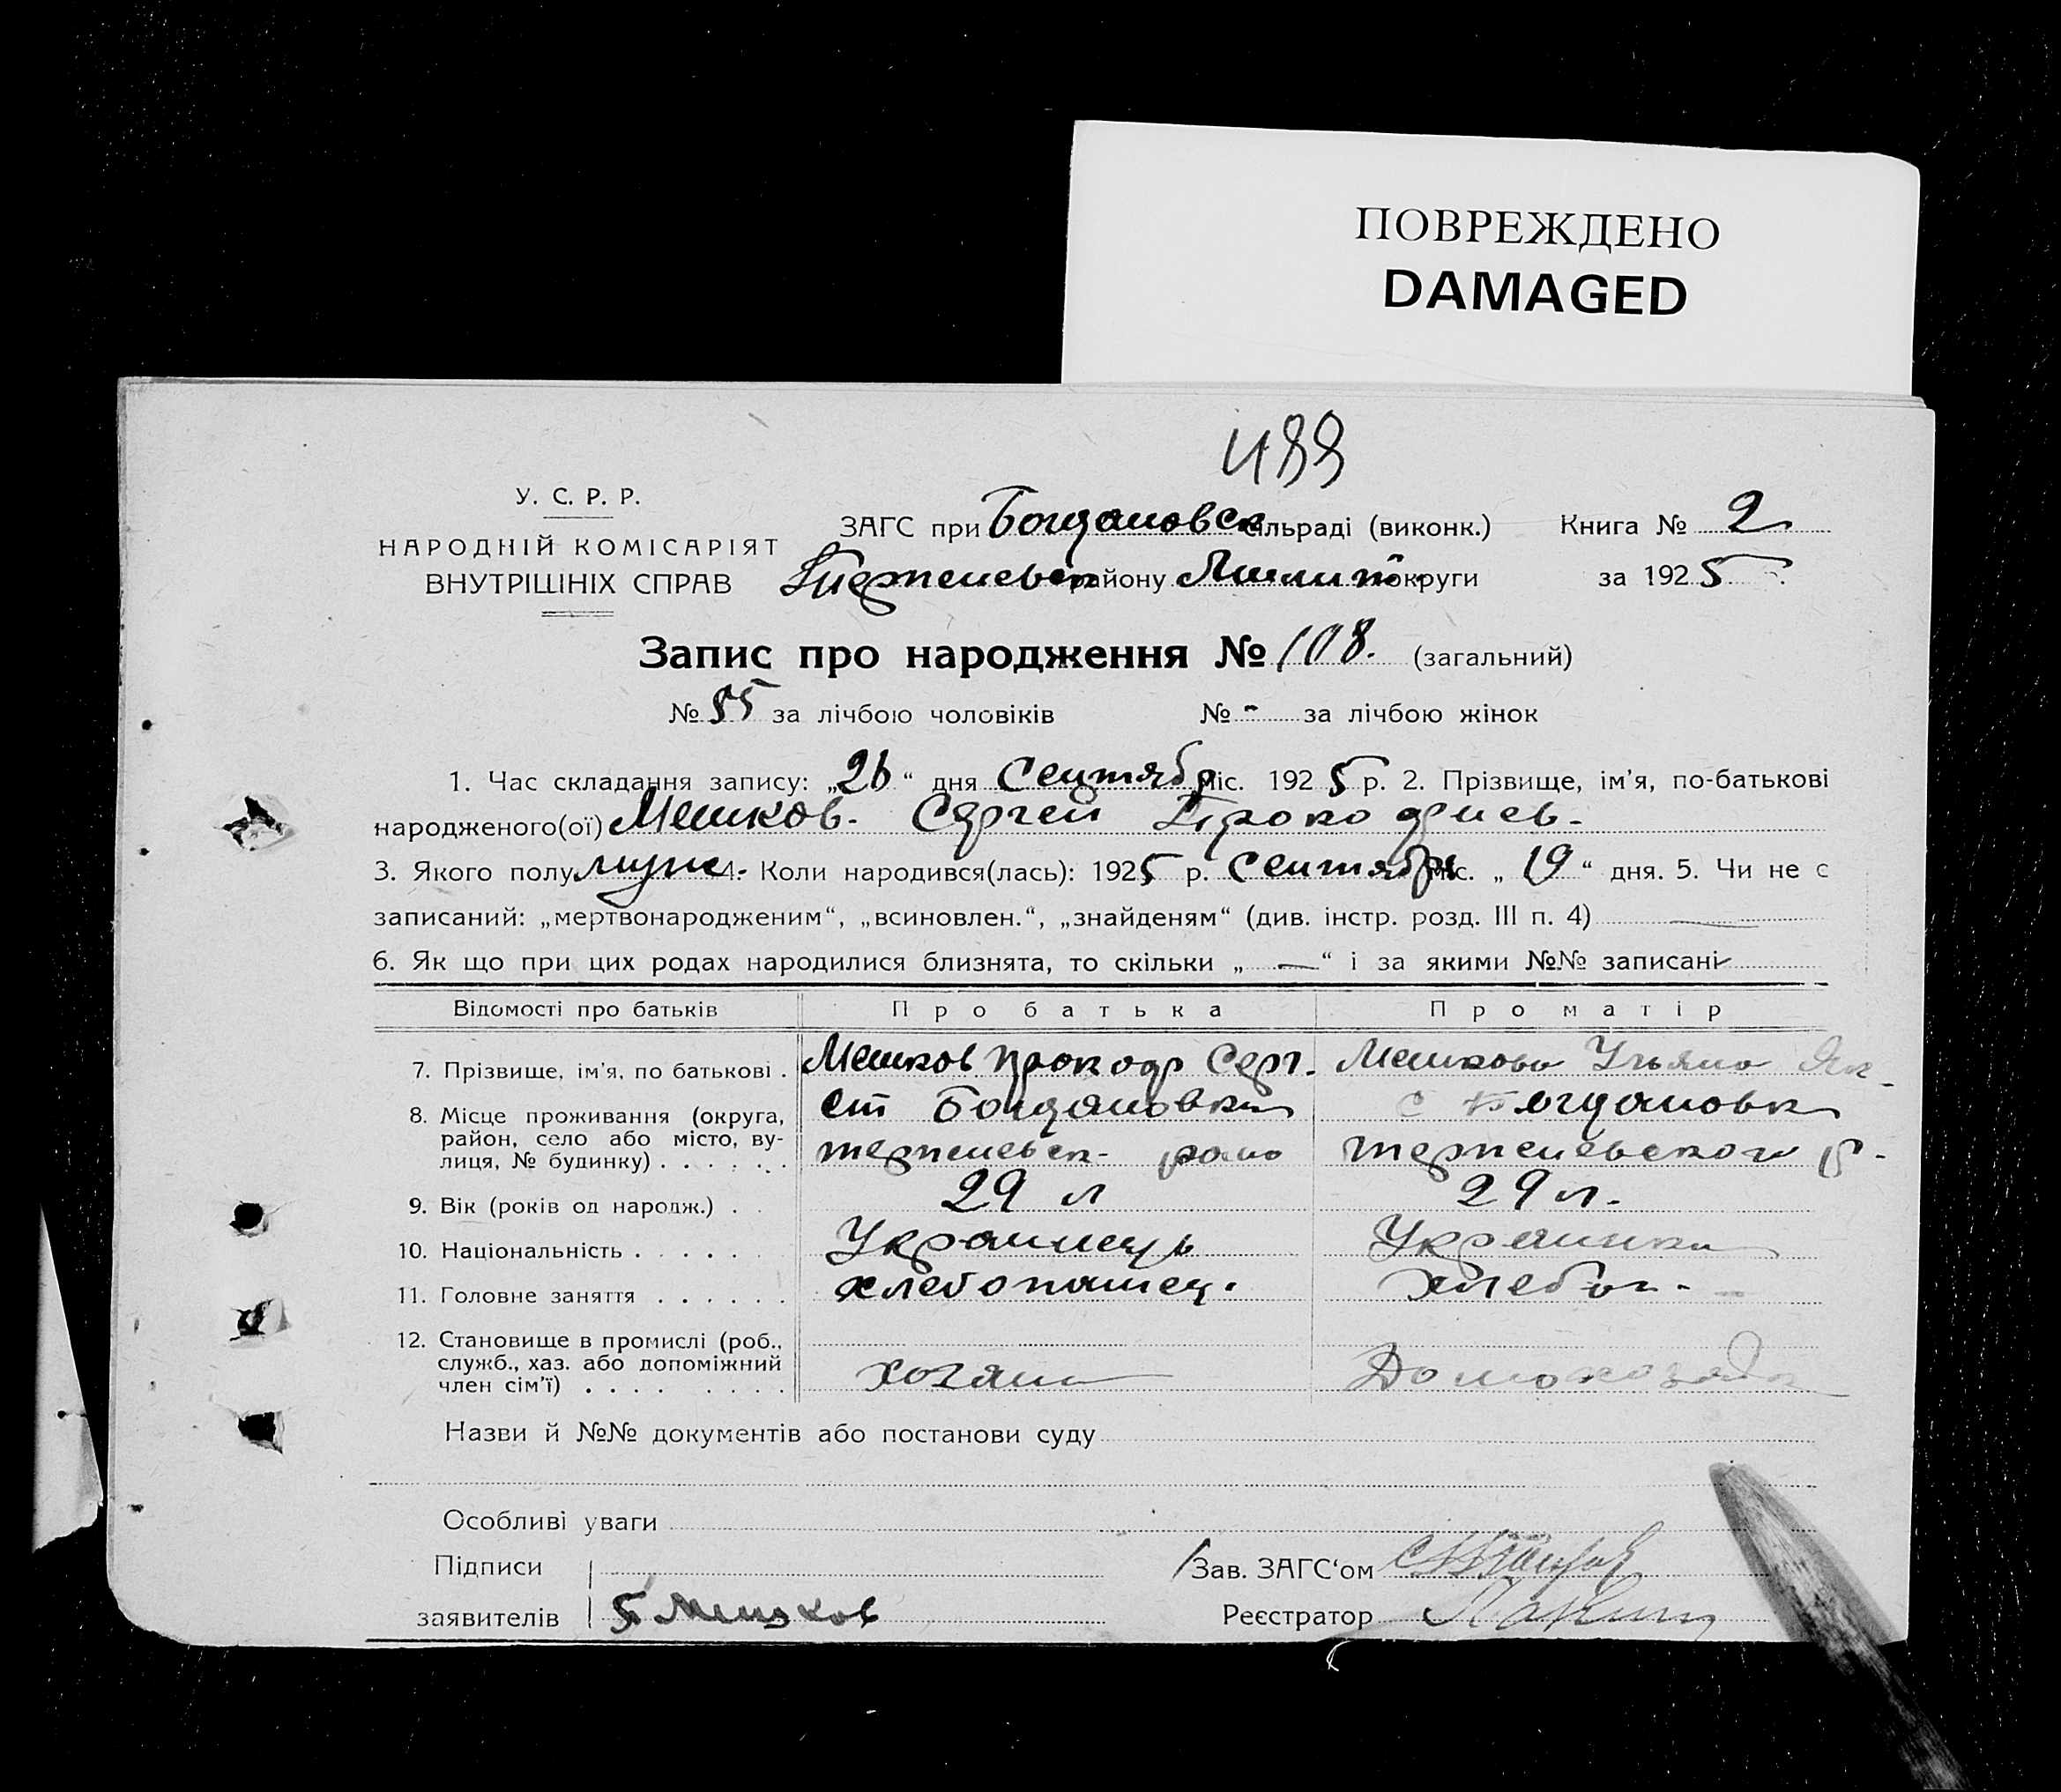 ПОВРЕЖДЕНО
DAMAGED
488
У. С. Р. Р.
НАРОДНІЙ КОМІСАРІЯТ
ВНУТРІШНІХ СПРАВ
ЗАГС при Богдановск сільраді (виконк.) Книга № 2
Терпеневск району Мелит округи за 1925
Запис про народження № 108. (загальний)
№ 55 за лічбою чоловіків № - за лічбою жінок
1. Час складання запису: „26“ дня Сентябр міс. 1925 р. 2. Прізвище, ім'я, по-батькові
народженого(ої) Мешков. Сергей Прокофиев.
3. Якого полу муж. 4. Коли народився(лась): 1925 р. Сентября міс. „19“ дня. 5. Чи не є
записаний: „мертвонародженим“, „всиновлен.“, „знайденям“ (див. інстр. розд. III п. 4) —
6. Як що при цих родах народилися близнята, то скільки „ — “ і за якими №№ записані
Відомості про батьків Про батька Про матір
7. Прізвище, ім'я, по батькові . Мешков Прокоф Серг. Мешкова Ульяна Як-
8. Місце проживання (округа, район, село або місто, вулиця, № будинку) . . . . . .
Богдановка
терпеневск-
с Богдановка
терпеневского р-
9. Вік (років од народж.) . . 29 л 29 л.
10. Національність . . . . . . Украинець Украинка
11. Головне заняття . . . . . . хлебопашец. хлебоп.
12. Становище в промислі (роб., служб., хаз. або допоміжний член сім'ї) . . . . . . . . хозяин Домохозяйк
Назви й №№ документів або постанови суду
Особливі уваги
Підписи
заявителів П Мешков
Зав. ЗАГС‘ом
Реєстратор